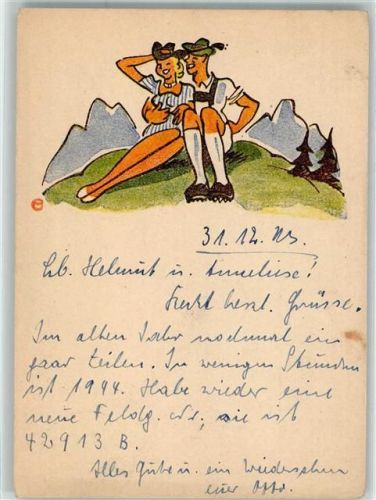 31.12.43.
Lb. Helmut u. Anneliese!
Recht herzl. Grüsse.
Im alten Jahr nochmal ein
paar Zeilen. In wenigen Stunden
ist 1944. Habe wieder eine
neue Feldp. sie ist
42913 B.
Alles Gute u. ein Wiedersehen
euer Otto.